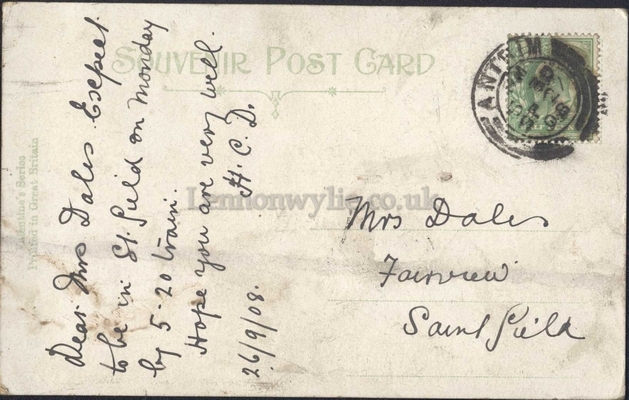 SOUVENIR POST CARD
Valentine's Series
Printed in Great Britain
Dear Mrs Dales Expect
to be in St. field on Monday
by 5-20 train.
Hope you are very well.
H. C. D.
26/9/08.
ANTRIM
Lennonwylie.co.uk
Mrs Dales
Fairview
Saintfield